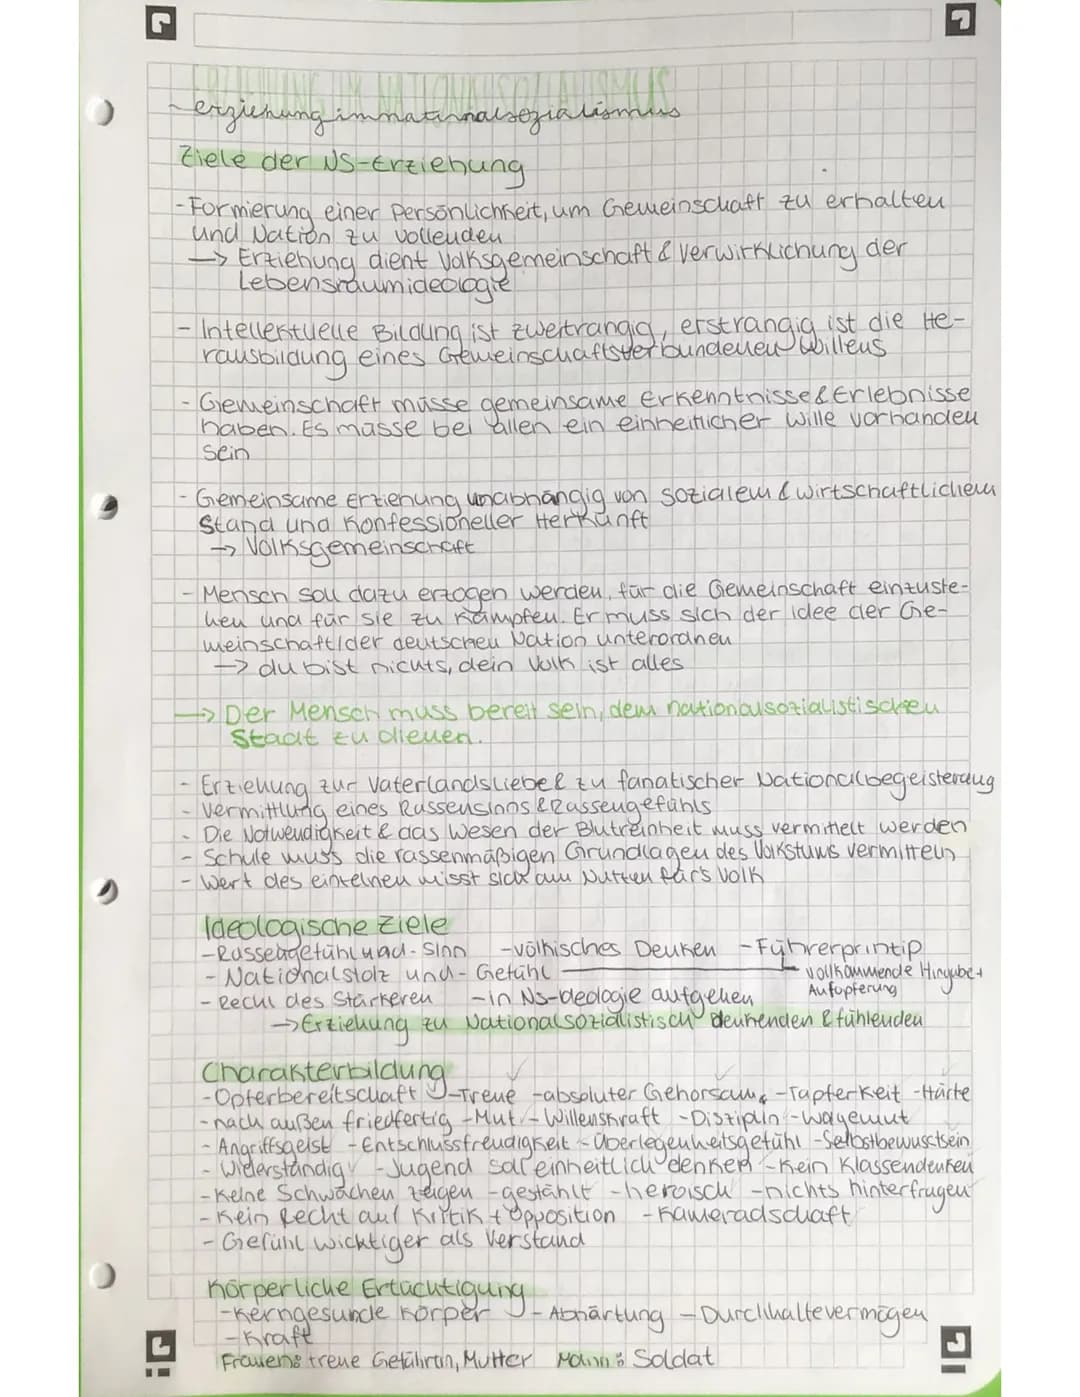 ERZIEHUNG IM NATIONALSOZIALISMUS
erziehung im nationalsozialismus
Ziele der NS-Erziehung
- Formierung einer Persönlichkeit, um Gemeinschaft zu erhalten
und Nation zu vollenden
→ Erziehung dient Volksgemeinschaft & Verwirklichung der
Lebensraumideologie
- Intellektuelle Bildung ist zweitrangig, erstrangig ist die He-
rausbildung eines Gemeinschaftsverbundenen Willens
- Gemeinschaft müsse gemeinsame Erkenntnisse & Erlebnisse
haben. Es müsse bei allen ein einheitlicher Wille vorhanden
sein
- Gemeinsame Erziehung unabhängig von sozialem & wirtschaftlichem
Stand und Konfessioneller Herkunft
→ Volksgemeinschaft
- Mensch soll dazu erzogen werden, für die Gemeinschaft einzuste-
hen und für sie zu kämpfen. Er muss sich der Idee der Ge-
meinschaft/der deutschen Nation unterordnen
→ du bist nichts, dein Volk ist alles
→ Der Mensch muss bereit sein, dem nationalsozialistischen
Staat zu dienen.
- Erziehung zur Vaterlandsliebe & zu fanatischer Nationalbegeisterung
- Vermittlung eines Rassensinns & Rassengefühls
- Die Notwendigkeit & das Wesen der Blutreinheit muss vermittelt werden
- Schule muss die rassenmäßigen Grundlagen des Volkstums vermitteln
- Wert des einzelnen misst sich am Nutzen für's Volk
Ideologische Ziele
- Rassengefühl und - Sinn - völkisches Denken - Führerprinzip
- Nationalstolz und - Gefühl vollkommende Hingabe +
Aufopferung
- Recht des Stärkeren - in NS-Ideologie aufgehen
→ Erziehung zu Nationalsozialistisch denkenden & fühlenden
Charakterbildung
- Opferbereitschaft - Treue - absoluter Gehorsam - Tapferkeit - Härte
- nach außen friedfertig - Mut - Willenskraft - Disziplin - Wagemut
- Angriffsgeist - Entschlussfreudigkeit - Überlegenheitsgefühl - Selbstbewusstsein
- Widerständig - Jugend soll einheitlich denken - Kein Klassendenken
- Keine Schwächen zeigen - gestählt - heroisch - nichts hinterfragen
- Kein Recht auf Kritik + Opposition - Kameradschaft
- Gefühl wichtiger als Verstand
Körperliche Ertüchtigung
- Kerngesunde Körper - Abhärtung - Durchhaltevermögen
- Kraft
Frauen: treue Gefährtin, Mutter Mann: Soldat